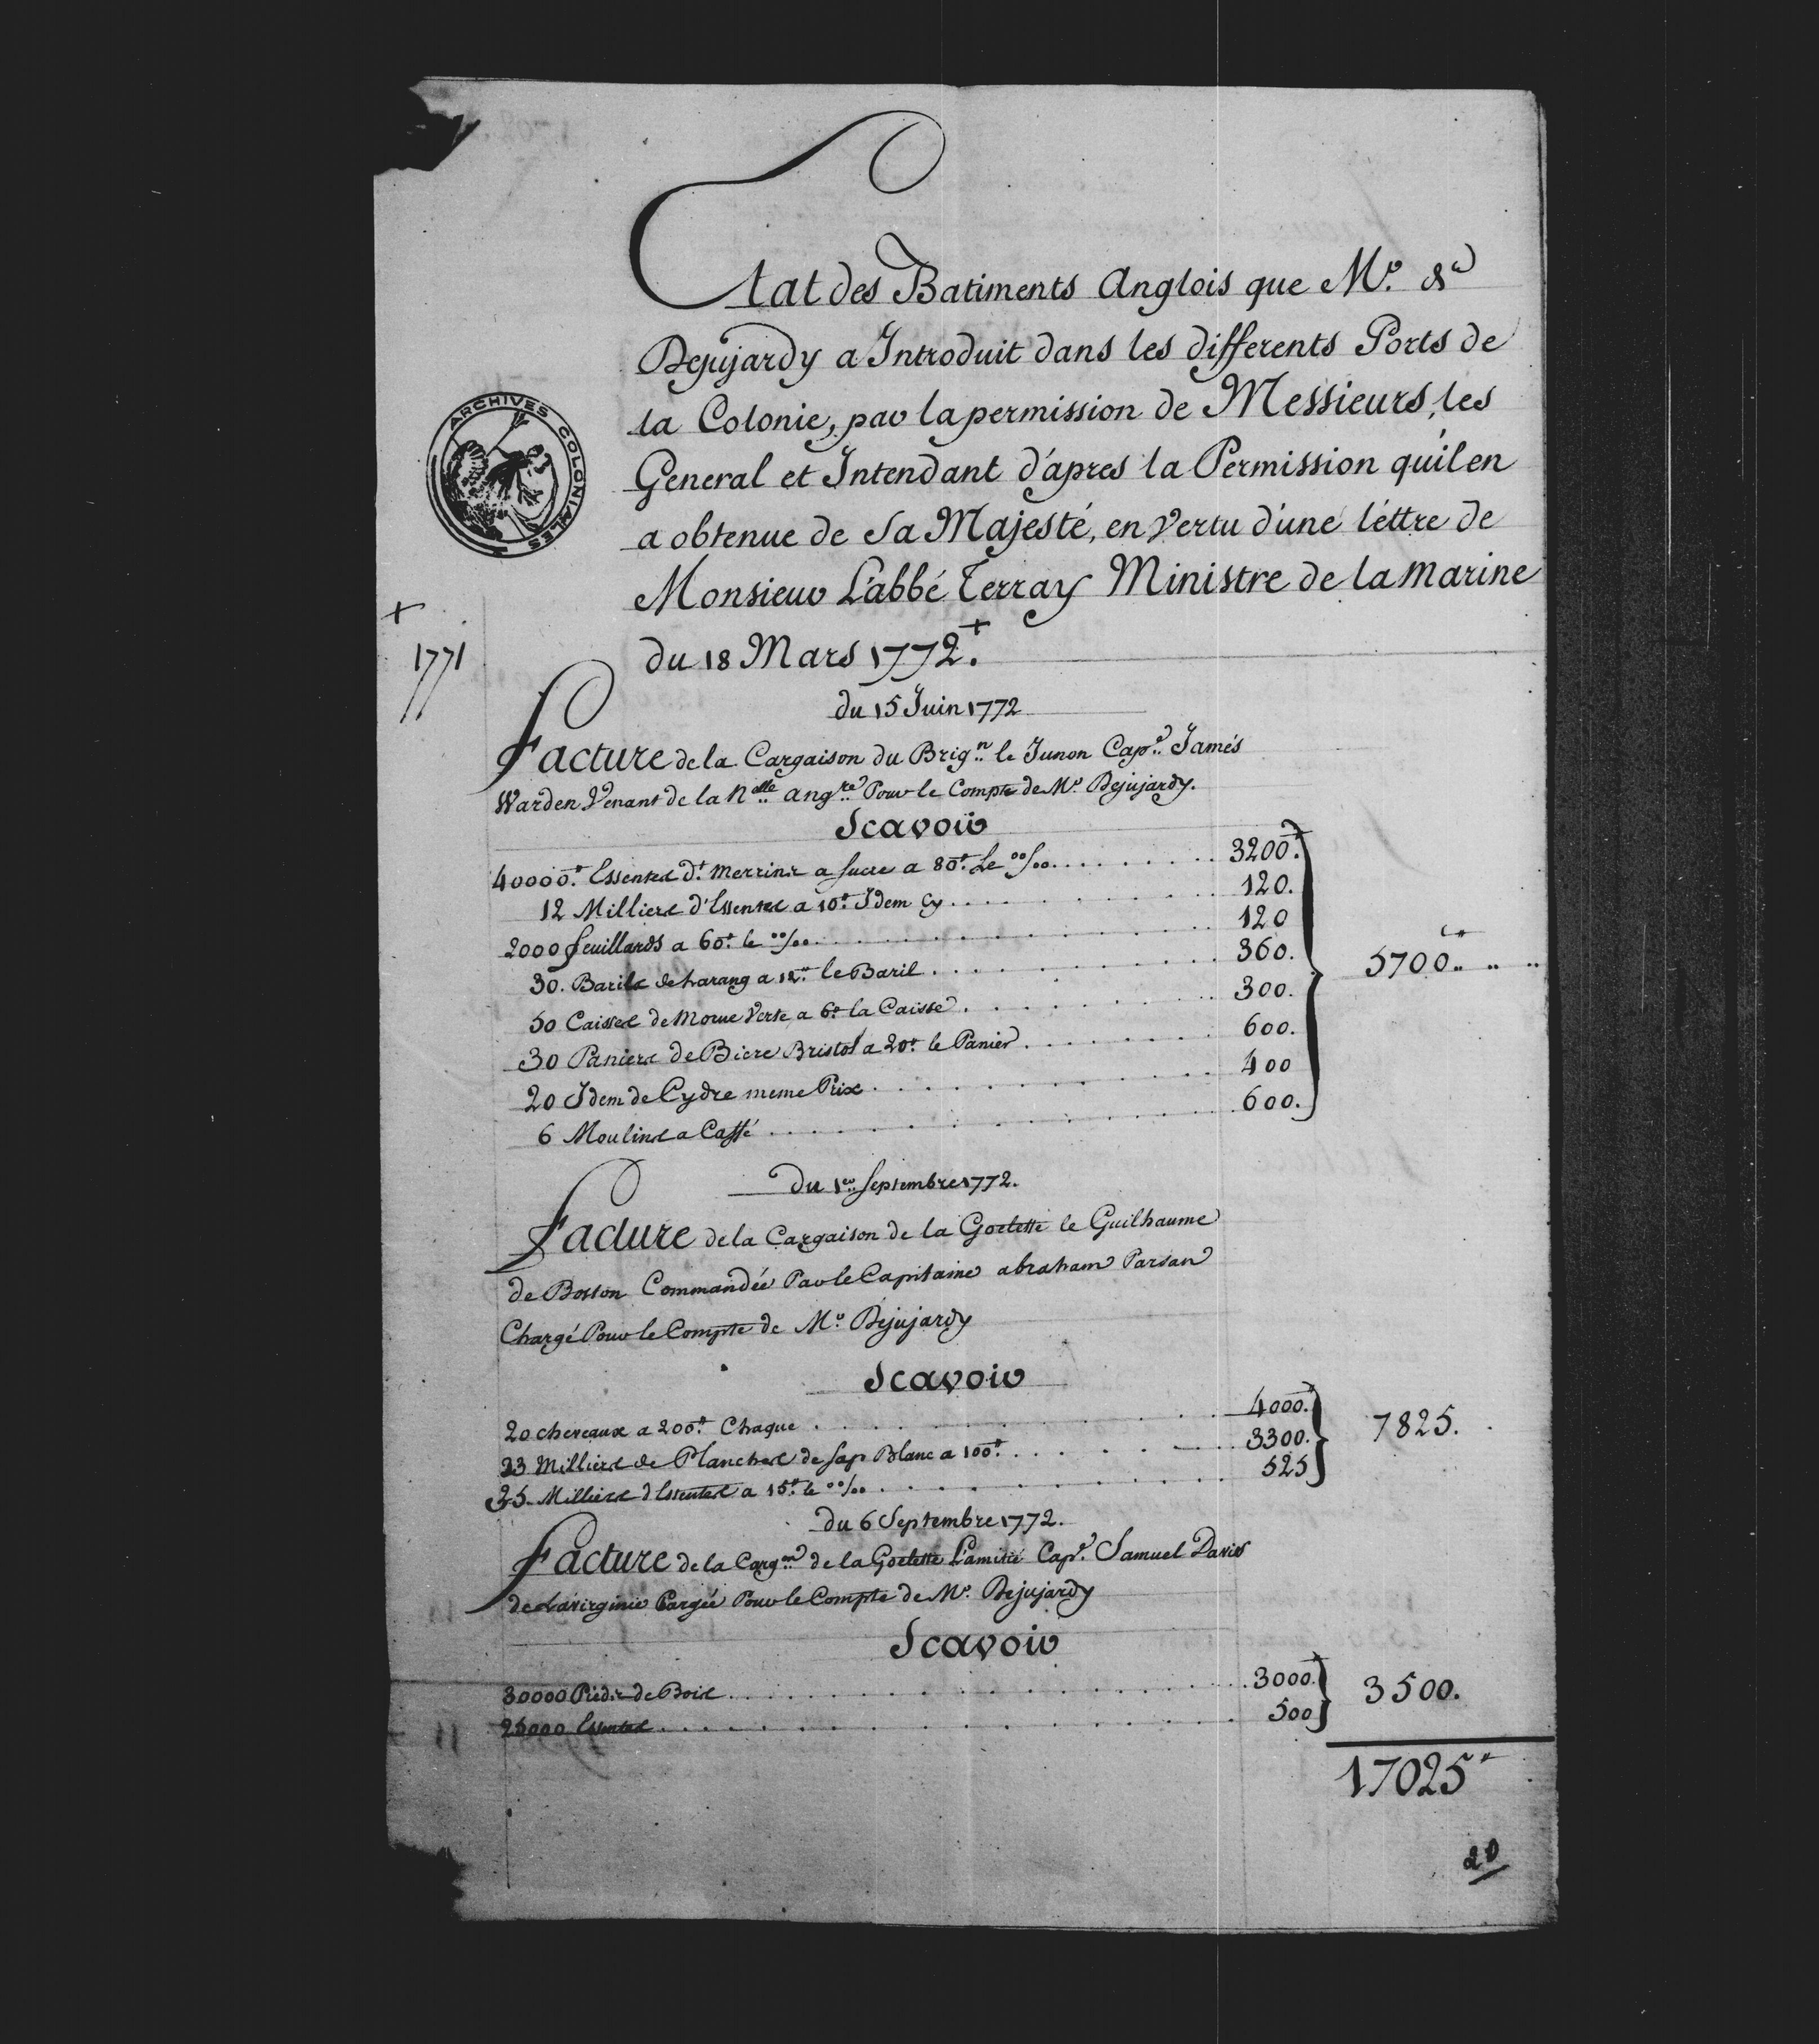 Etat des Batiments Anglois que Mr. de
Dejujardy a Introduit dans les differents Ports de
la Colonie, par la permission de Messieurs, les
General et Intendant d'apres la Permission qu'il en
a obtenue de Sa Majesté, en Vertu d'une léttre de
Monsieur L'abbé Terray Ministre de la Marine
du 18 Mars 1772.+
+
1771
ARCHIVES COLONIALES
du 15 Juin 1772
Facture de la Cargaison du Brign. le Junon Cape. Jamés
Warden Venant de la Nelle angre Pour le Compte de Mr. Dejujardy.
Scavoir
40000.# Essentes d.# Merrins a sucre a 80.# Le 00/00 . . . . . . . . 3200.#
12 Milliers d'Essentes a 10.# Idem Cy . . . . . . . . 120.
2000 feuillards a 60.# le 00/00 . . . . . . . . 120
30. Barils de harang a 12.# le Baril . . . . . . . . 360.
50 Caisses de Morue Verte a 6.# la Caisse . . . . . . . . 300.
30 Paniers de Biere Bristol a 20.# le Panier . . . . . . . . 600.
20 Idem de Cydre meme Prix . . . . . . . . 400
6 Moulins a Caffé . . . . . . . . 600.
5700.. .. ..
Du 1er. Septembre 1772.
Facture de la Cargaison de la Goelette le Guilhaume
de Boston Commandée Par le Capitaine abraham Parsan
Chargé Pour le Compte de Mr. Dejujardy
Scavoir
20 chevaux a 200.# Chaque . . . . . . . . 4000.#
33 Milliers de Planches de Sap Blanc a 100.# . . . . . . . . 3300.
35. Milliers d'Essentes a 15.# le 00/00 . . . . . . . . 525
7825.
du 6 Septembre 1772.
Facture de la Cargon de la Goelette L'amitié Cape. Samuel Davis
de Lavirginie Cargée Pour le Compte de Mr. Dejujardy
Scavoir
30000 Pieds de Bois . . . . . . . . 3000.#
25000 Essentes . . . . . . . . 500
3500.
17025#